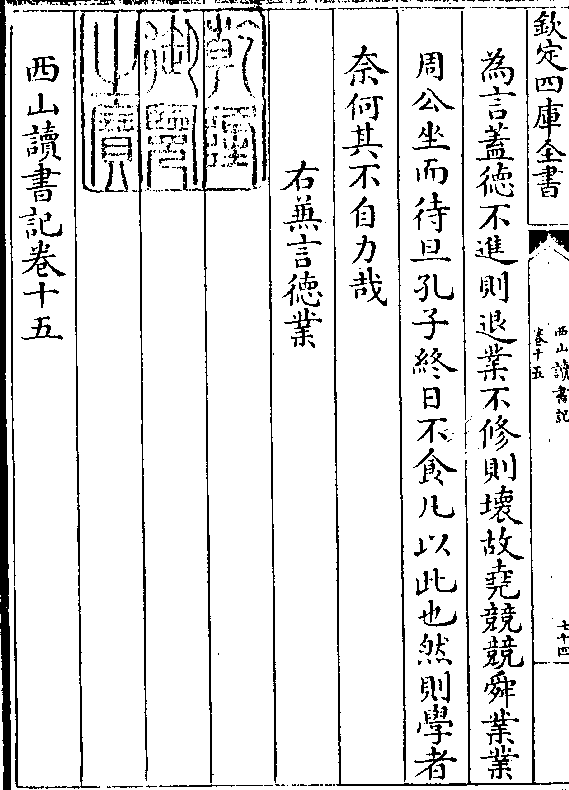 欽定四庫全書
西山讀書記
卷十五
七十四
為言蓋徳不進則退業不修則壊故堯競競舜業業
周公坐而待旦孔子終日不食凡以此也然則學者
奈何其不自力哉
右兼言徳業
乾隆
御覽
之寶
西山讀書記卷十五